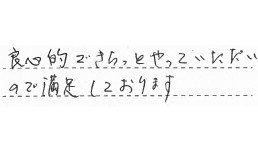 良心的できちっとやっていただい
ので満足しております